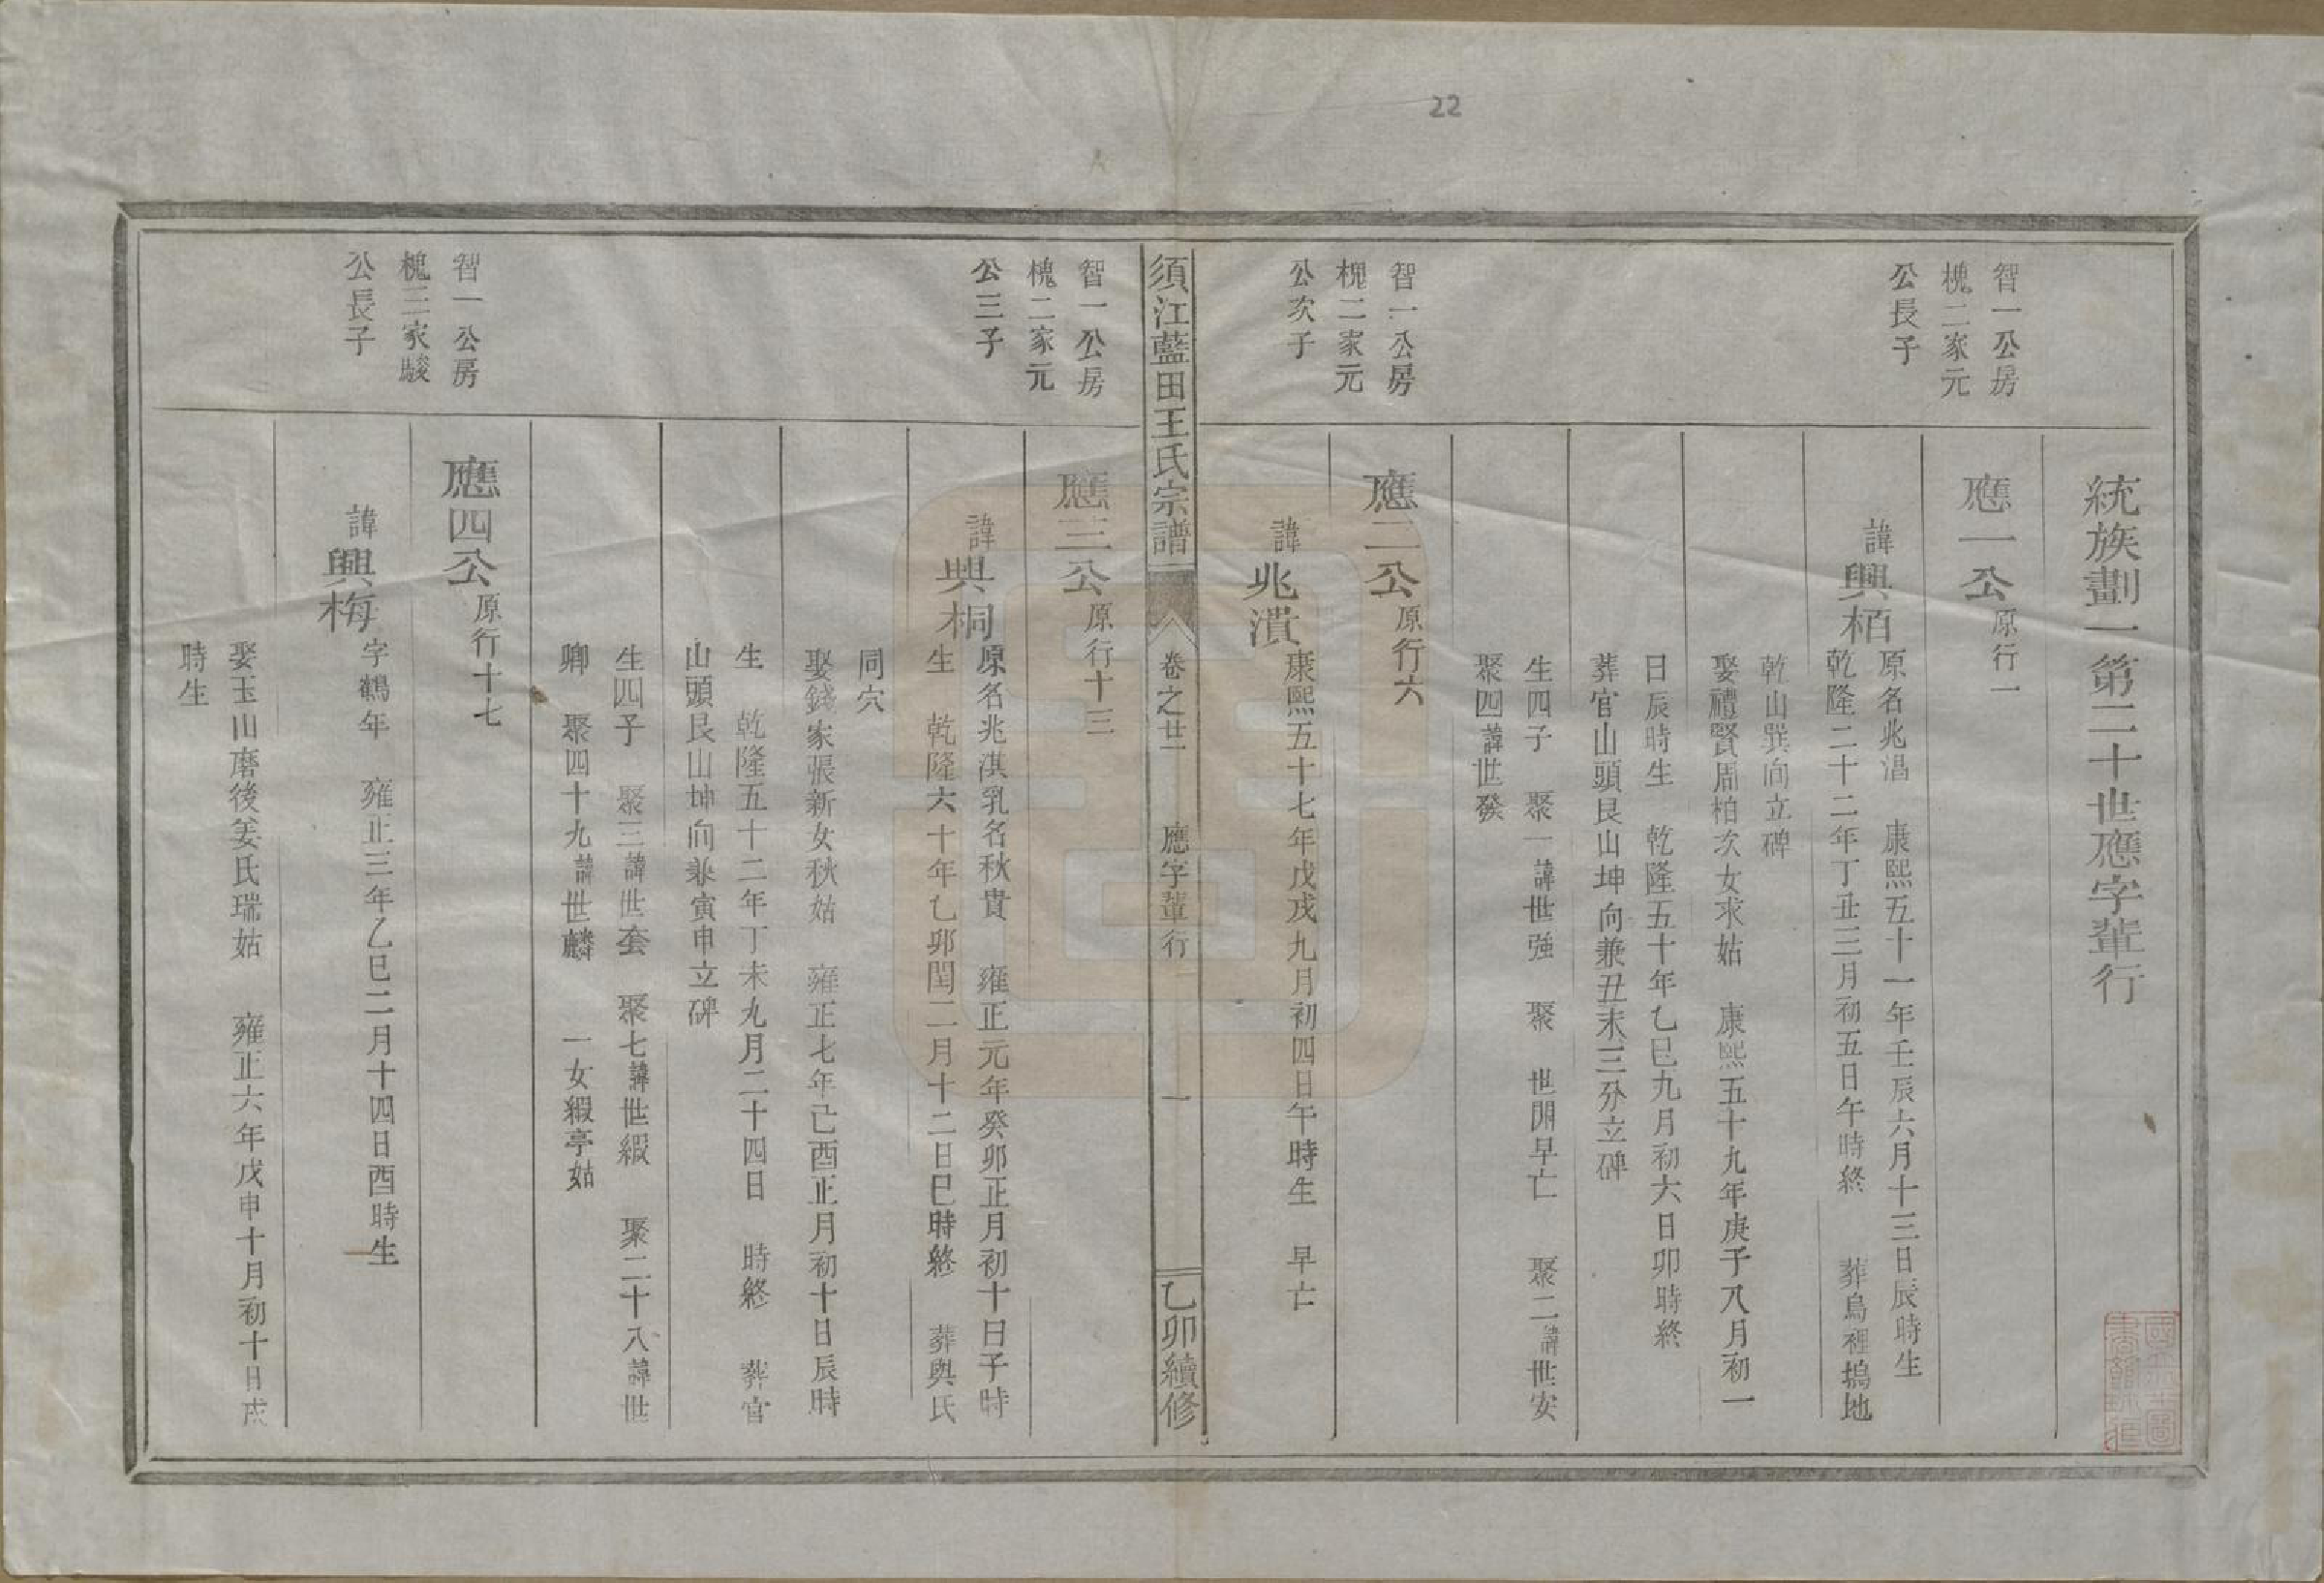 22
統族劃一第二十世應字輩行
智一公房
槐二家元
公長子
應一公原行一
諱興栢
原名兆淐 康熙五十一年壬辰六月十三日辰時生
乾隆二十二年丁丑三月初五日午時終 葬烏裡塢地
乾山巽向立碑
娶禮賢周柏次女求姑 康熙五十九年庚子八月初一
日辰時生 乾隆五十年乙巳九月初六日卯時終
葬官山頭艮山坤向兼丑未三分立碑
生四子 聚一諱世強 聚 世開早亡 聚二諱世安
聚四諱世發
智一公房
槐二家元
公次子
應二公原行六
諱兆潰
康熙五十七年戊戌九月初四日午時生 早亡
須江藍田王氏宗譜
卷之廿一 應字輩行 一
乙卯續修
智一公房
槐二家元
公三子
應三公原行十三
諱興桐
原名兆淇乳名秋貴 雍正元年癸卯正月初十日子時
生 乾隆六十年乙卯閏二月十二日巳時終 葬與氏
同穴
娶錢家張新女秋姑 雍正七年己酉正月初十日辰時
生 乾隆五十二年丁未九月二十四日 時終 葬官
山頭艮山坤向兼寅申立碑
生四子 聚三諱世套 聚七諱世緞 聚二十八諱世
卿 聚四十九諱世麟 一女緞亭姑
智一公房
槐三家駿
公長子
應四公原行十七
諱興梅
字鶴年 雍正三年乙巳二月十四日酉時生
娶玉山磨後姜氏瑞姑 雍正六年戊申十月初十日戌
時生